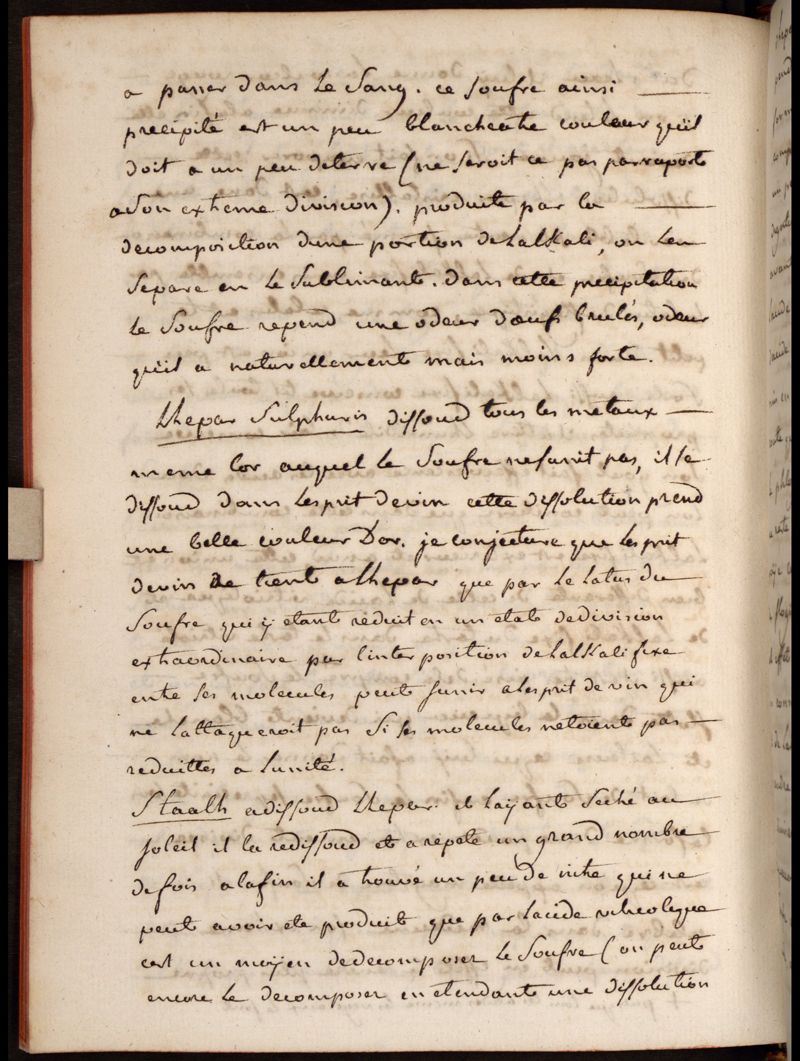 a passer dans le Sang. ce soufre ainsi
precipité est un peu blancheatre couleur quil
doit a un peu deterre (ne seroit ce pas par raport
a son extreme division). produite par la
decomposition dune portion de lalkali, on len
separe en le Sublimant. dans cette precipitation
le Soufre repend une odeur dœufs brulés, odeur
quil a naturellement mais moins forte.
Lhepar Sulphuris dissoud tous les metaux
meme lor auquel le Soufre nesunit pas, il se
dissoud dans lesprit devin cette dissolution prend
une belle couleur Dor. je conjecture que lesprit
devin ne tient alhepar que par le latus du
Soufre qui y etant reduit en un etat dedivision
extraordinaire par linterposition de lalkali fixe
entre ses molecules peut sunir alesprit de vin qui
ne lattaqueroit pas Si ses molecules netoient pas
reduittes a lunité.
Staalh a dissoud lhepar. et layant Seché au
soleil il la redissoud et a repeté un grand nombre
defois alafin il a trouvé un peu de nitre qui ne
peut avoir eté produit que par lacide
cest un moyen dedecomposer le Soufre (on peut
encore le decomposer en etendant une dissolution